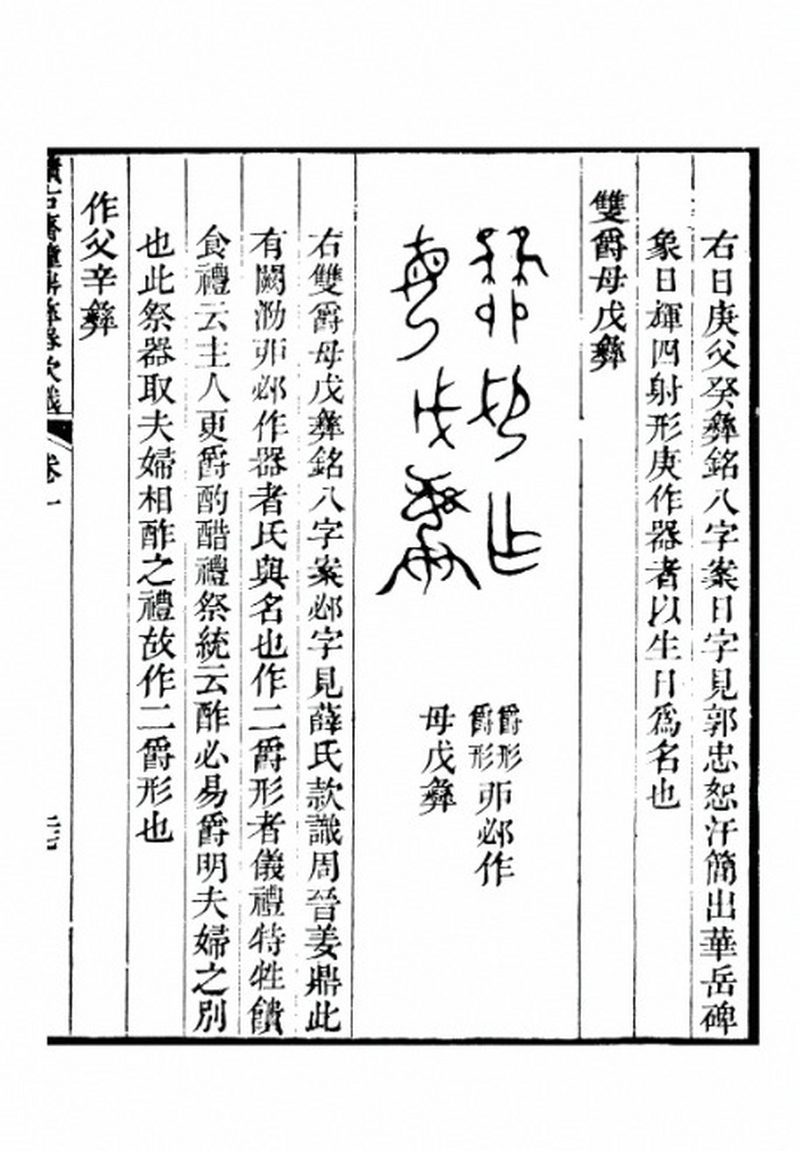 右日庚父癸彝銘八字案日字見郭忠恕汗簡出華岳碑
象日輝四射形庚作器者以生日爲名也
雙爵母戊彝
爵形爵形丣邲作
母戊彝
右雙爵母戊彝銘八字案邲字見薛氏款識周晉姜鼎此
有闕泐丣邲作器者氏與名也作二爵形者儀禮特牲饋
食禮云主人更爵酌醋禮祭統云酢必易爵明夫婦之別
也此祭器取夫婦相酢之禮故作二爵形也
作父辛彝
積古齋鐘鼎彝器款識 卷一